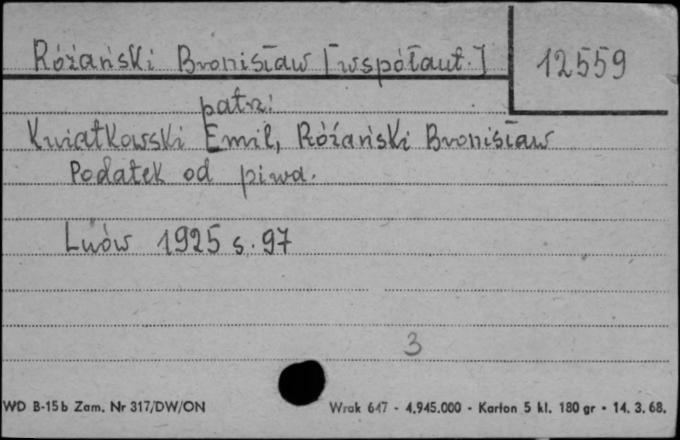 Różański Bronisław [współaut.] 12559
patrz:
Kwiatkowski Emil, Różański Bronisław
Podatek od piwa.
Lwów 1925 s. 97
3
WD B-15b Zam. Nr 317/DW/ON Wrak 647 - 4.945.000 - Karton 5 kl. 180 gr - 14. 3. 68.